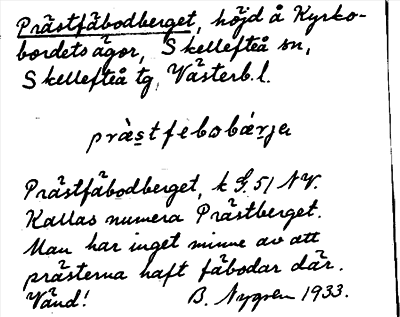 Prästfäbodberget, höjd å Kyrko-
bordets ägor, Skellefteå sn,
Skellefteå tg, Västerb. l.
pràstfebobärja
Prästfäbodberget, k G. 51 NV.
Kallas numera Prästberget.
Man har inget minne av att
prästerna haft fäbodar där.
Vänd! B. Nygren 1933.